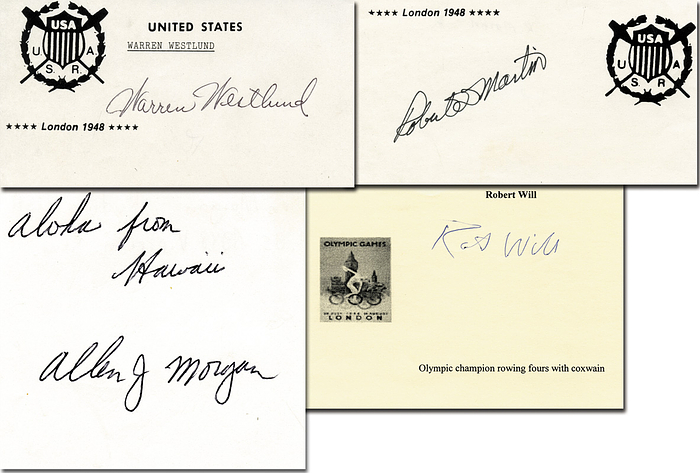 USA
U. A.
S. R.
UNITED STATES
WARREN WESTLUND
Warren Westlund
★★★★ London 1948 ★★★★
★★★★ London 1948 ★★★★
USA
U. A.
S. R.
Robert S Martin
aloha from
Hawaii
Allen J Morgan
Robert Will
Rob Will
OLYMPIC GAMES
LONDON
Olympic champion rowing fours with coxwain